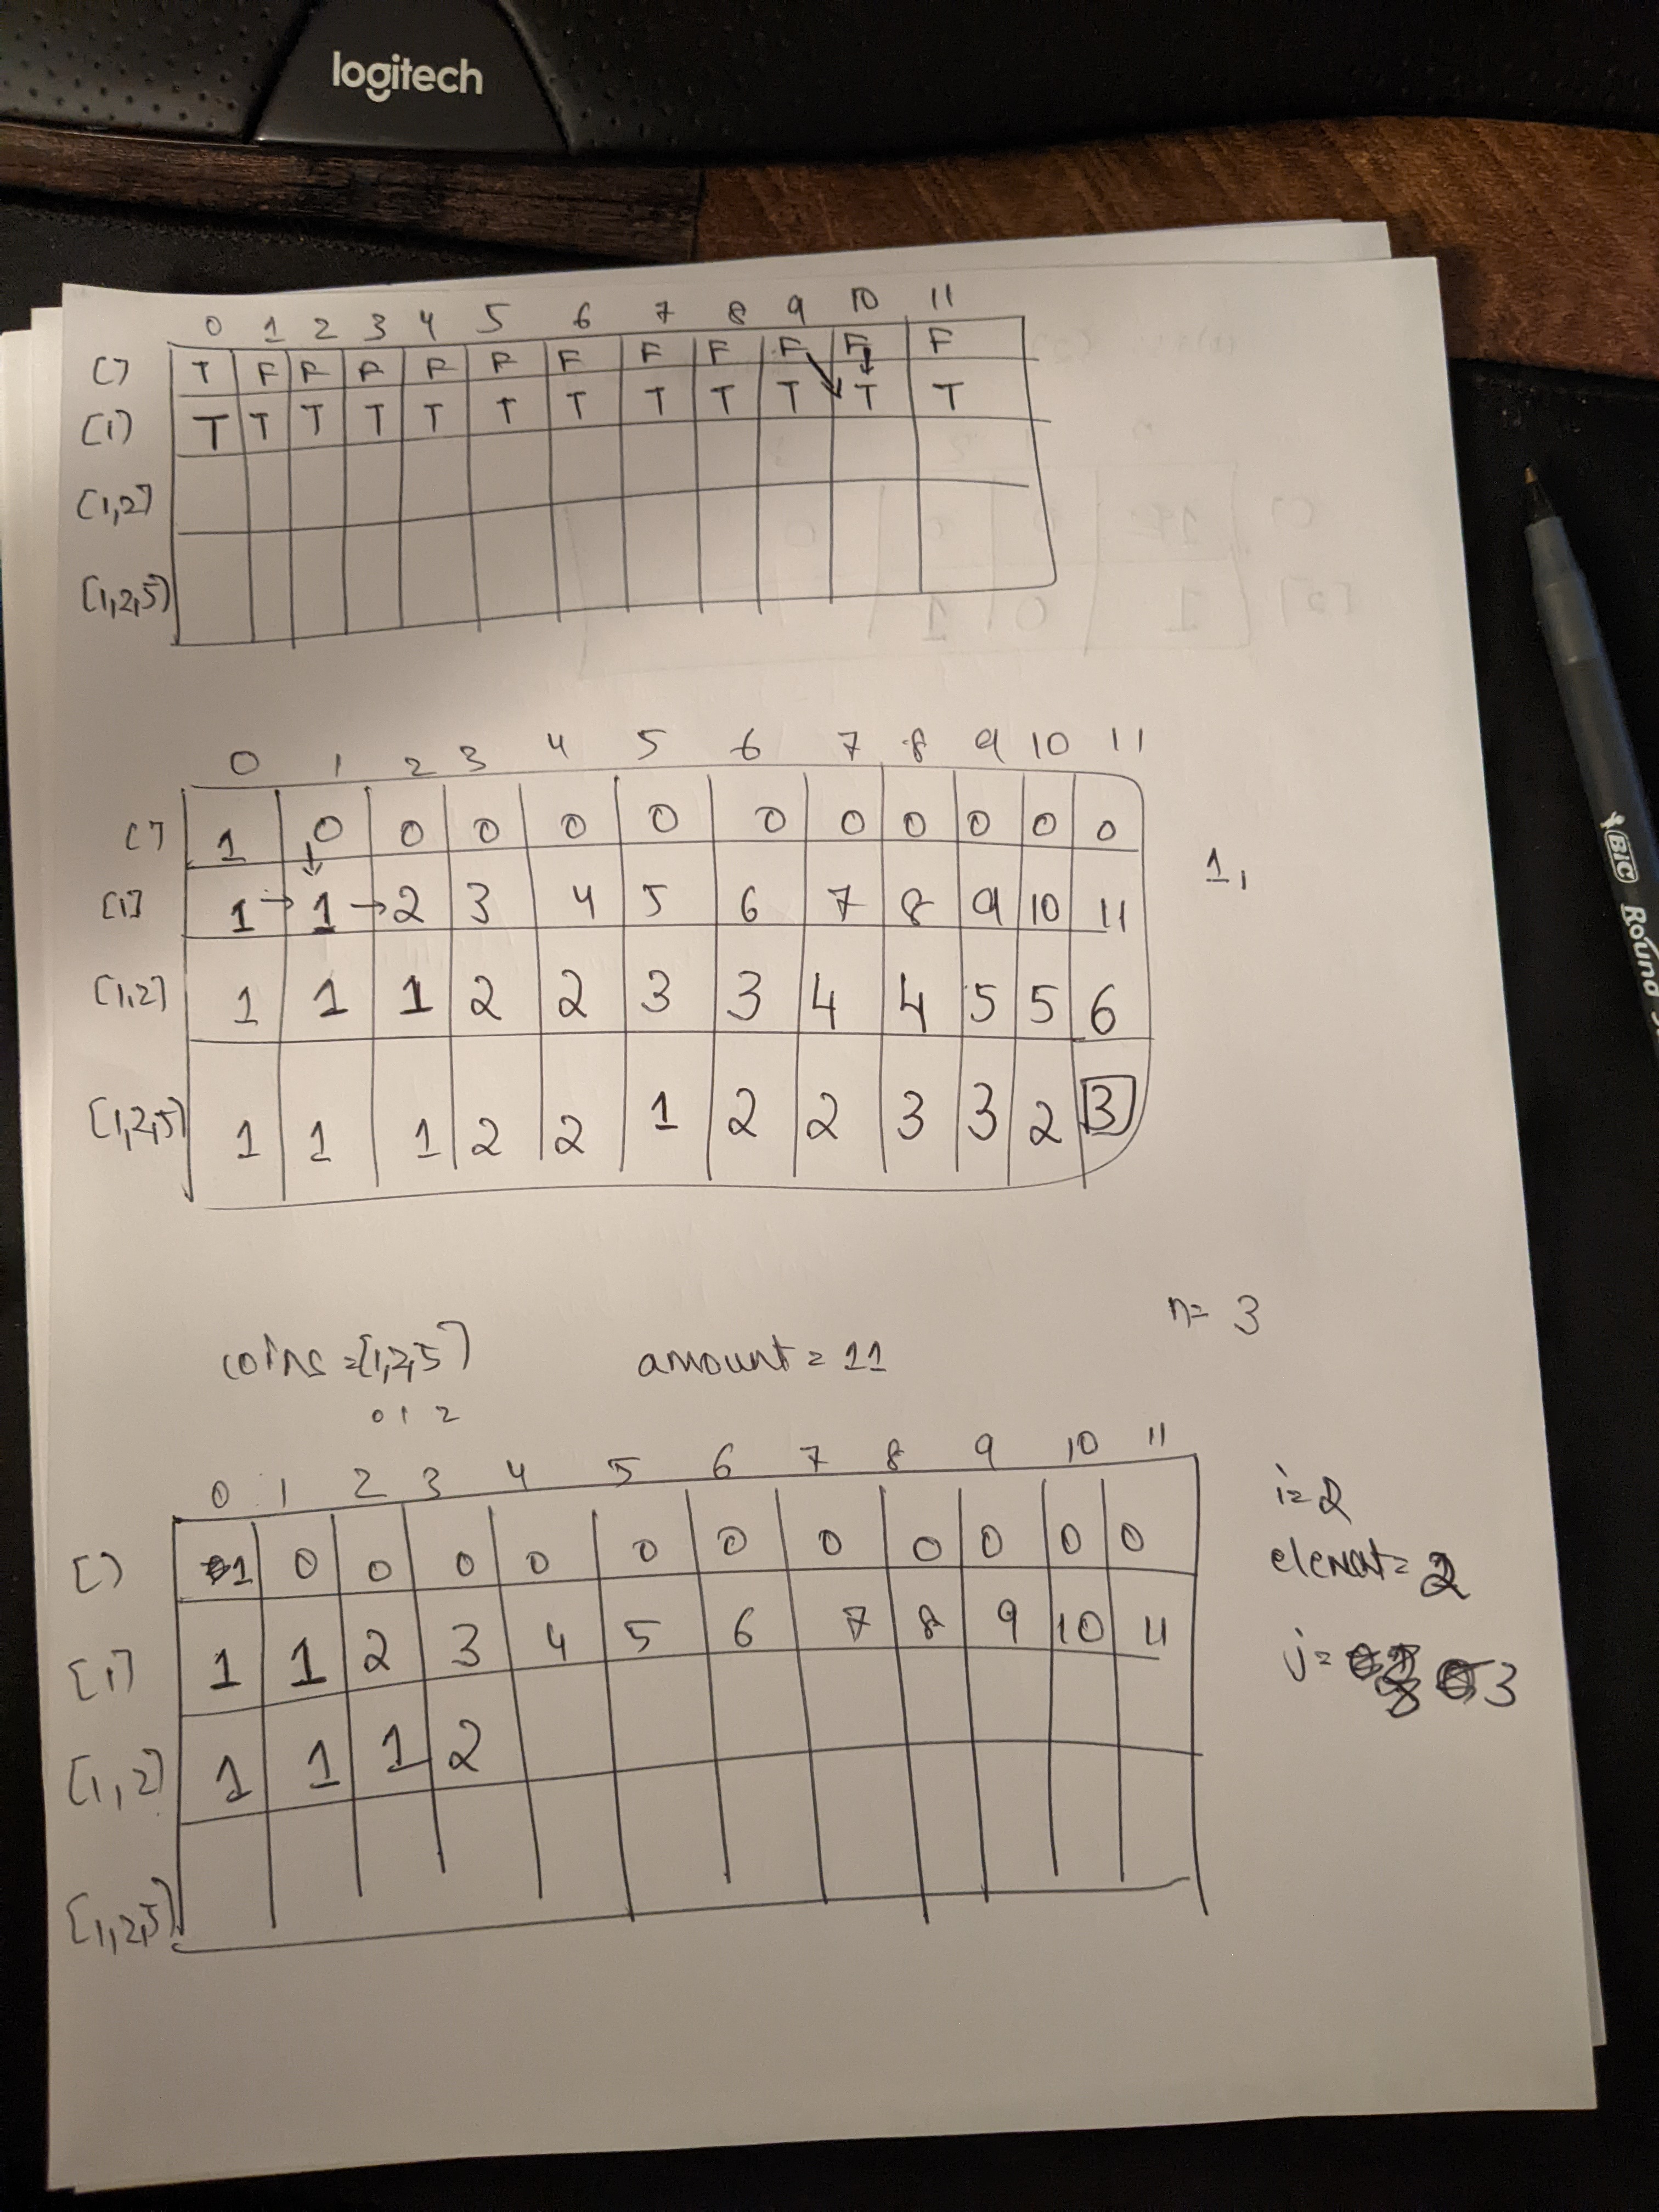 logitech
0 1 2 3 4 5 6 7 8 9 10 11
[] T F F F F F F F F F F F
[1] T T T T T T T T T T T T
[1,2]
[1,2,5]
0 1 2 3 4 5 6 7 8 9 10 11
[] 1 0 0 0 0 0 0 0 0 0 0 0
[1] 1 → 1 → 2 3 4 5 6 7 8 9 10 11
1,
[1,2] 1 1 1 2 2 3 3 4 4 5 5 6
[1,2,5] 1 1 1 2 2 1 2 2 3 3 2 3
n= 3
coins =[1,2,5] amount = 11
0 1 2
0 1 2 3 4 5 6 7 8 9 10 11
[] 1 0 0 0 0 0 0 0 0 0 0 0
[1] 1 1 2 3 4 5 6 7 8 9 10 11
[1,2] 1 1 1 2
[1,2,5]
i=2
elemat= 2
j= 3
BIC Round